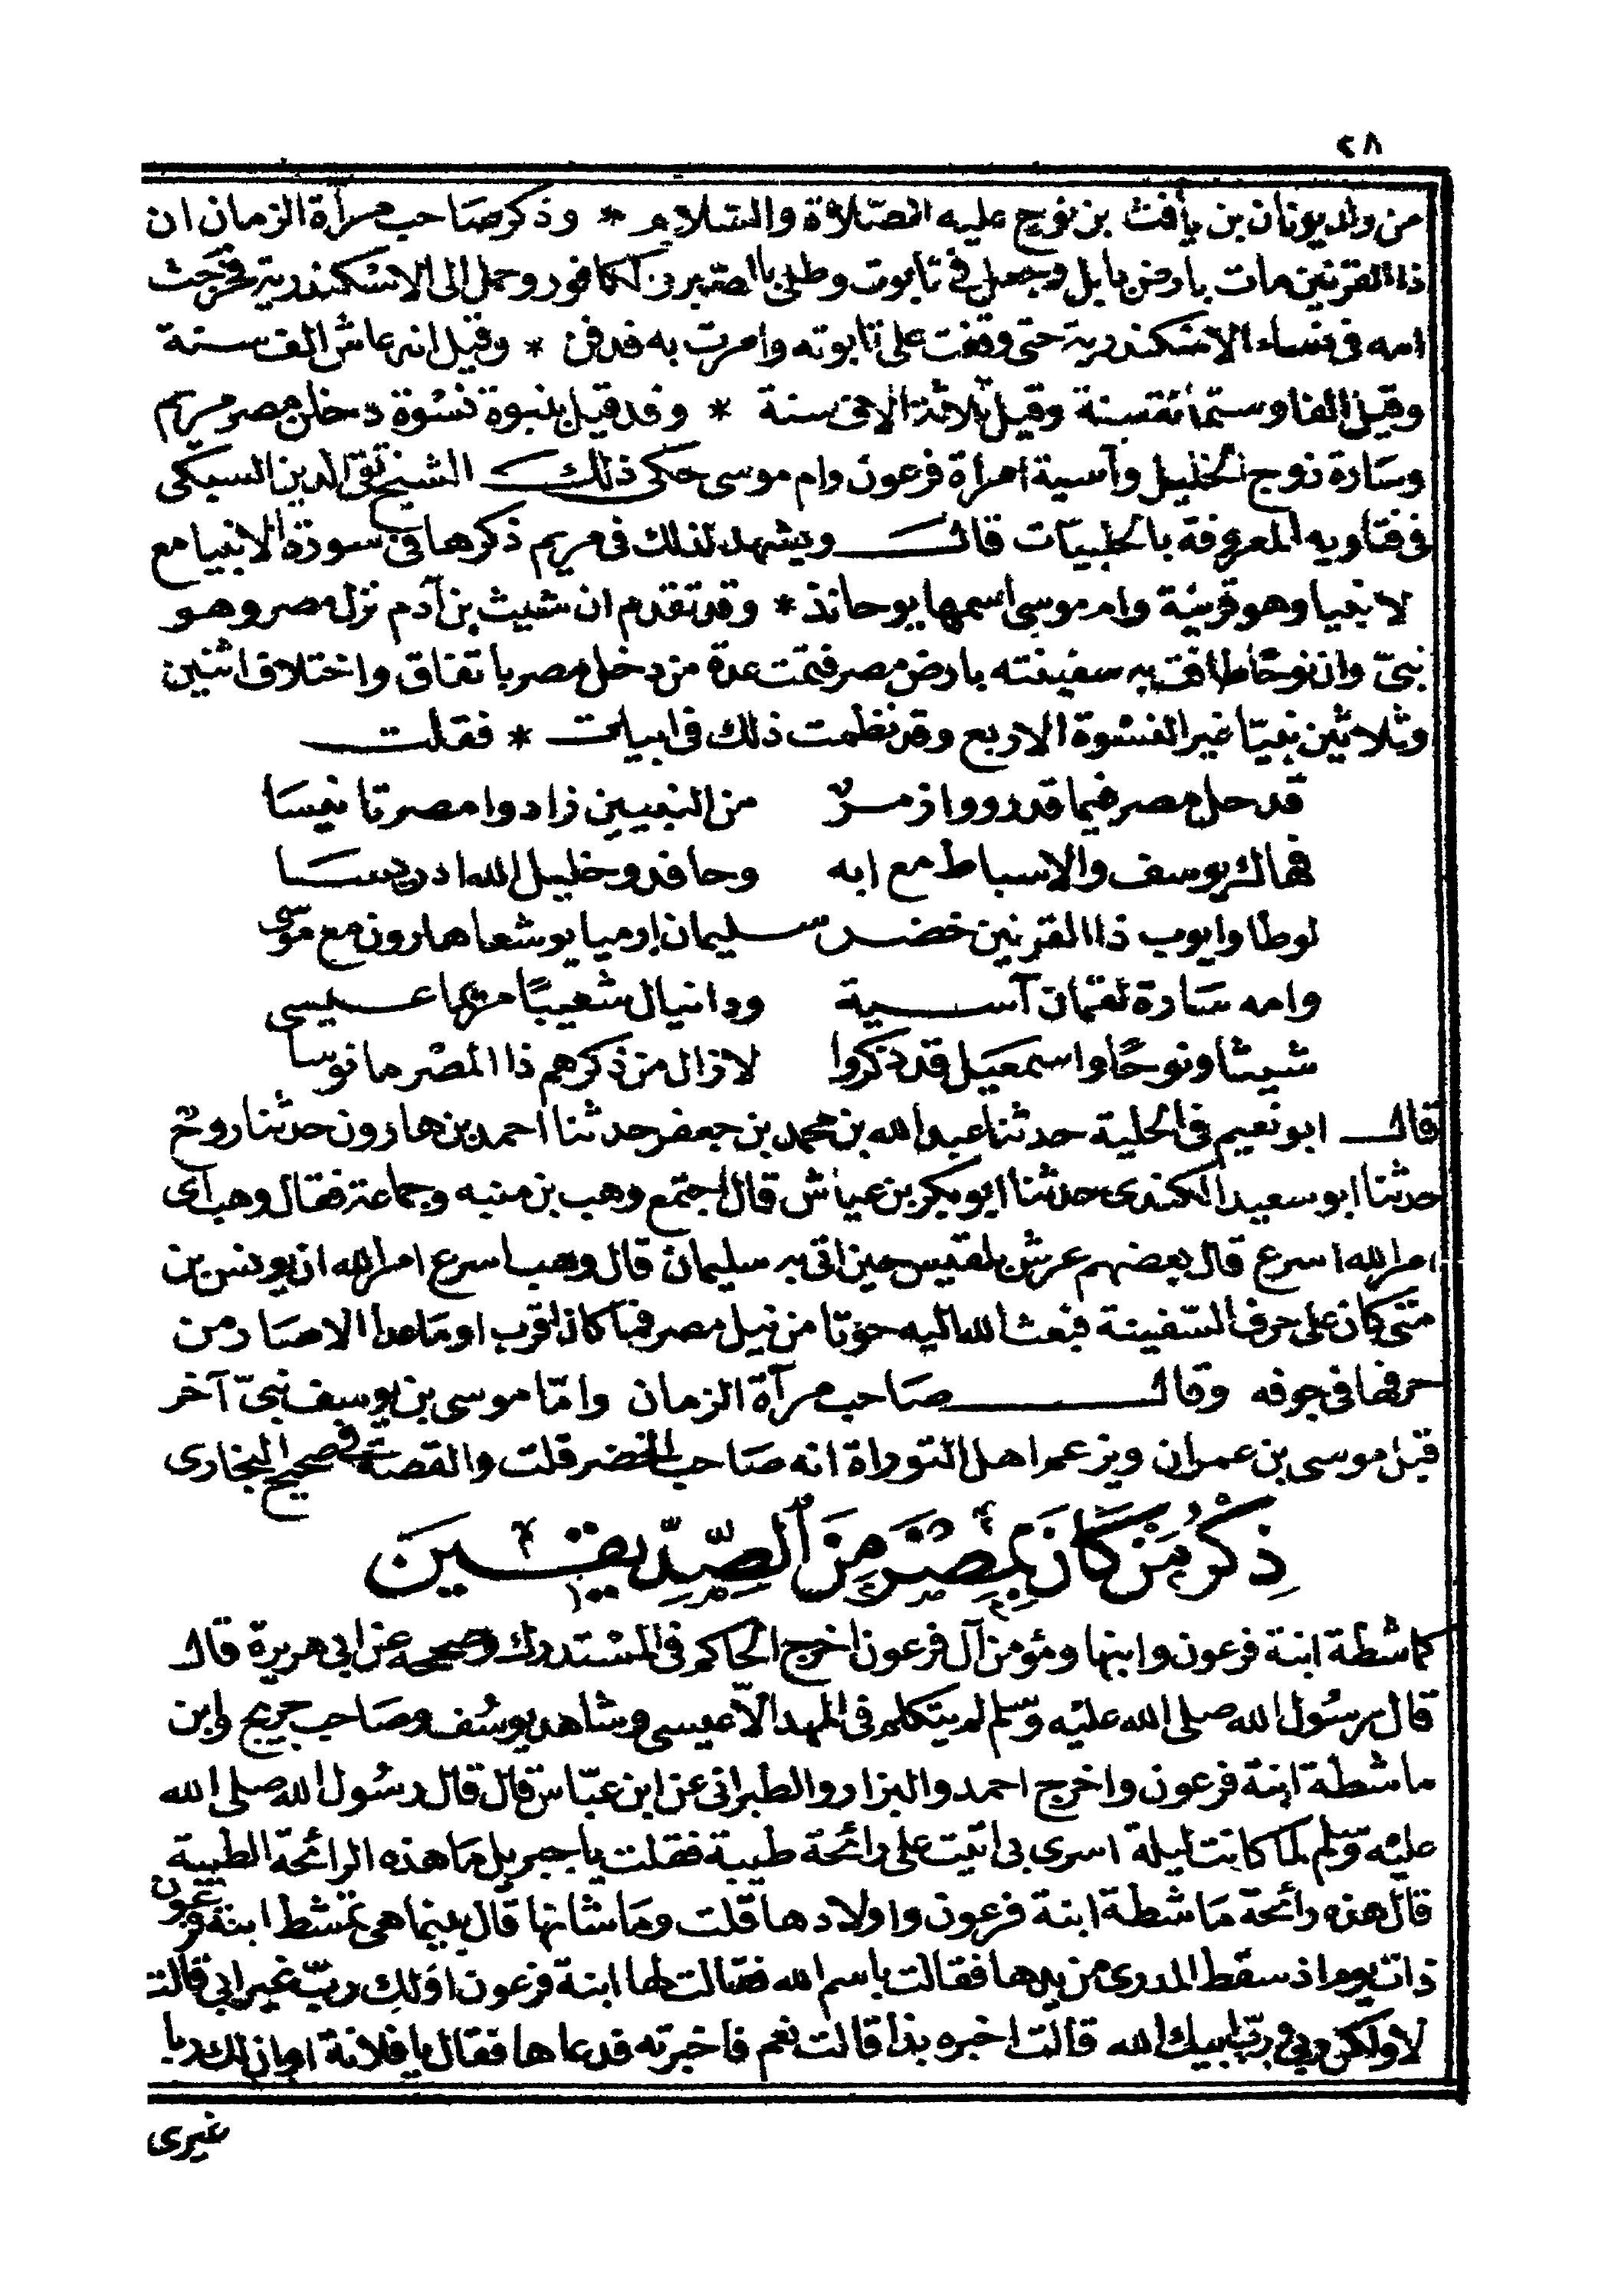 ٢٨
من ولد يونان بن يأفث بن نوح عليه الصّلاة والسّلام * وذكر صَاحب مرآة الزمان ان
ذا القرنين مات بارض بابل وجعل فى تابوت وطلى بالصّبر والكافور وحمل الى الاسكندرية فخرجت
امه فى نساء الاسكندرية حتى وقفت على تابوته وامرت به فدفن * وقيل انه عاش الف سنة
وقيل الفا وستمائة سنة وقيل ثلاثة الاف سنة * وقد قيل بنبوة نسوة دخلن مصر مريم
وسَارة زوج الخليل وآسية امرأة فرعون وام موسى حكى ذلك الشيخ تقى الدين السبكى
فى فتاويه المعروفة بالحلبيات قال ويشهد لذلك فى مريم ذكرها فى سورة الانبيا مع
الانبيا وهو قرينة وام موسى اسمها يوحانذ * وقد تقدم ان شيث بن آدم نزل مصر وهو
نبىّ وان نوحًا طافت به سفينته بارض مصر فتمت عدة من دخل مصر باتفاق واختلاف اثنين
وثلاثين نبيّا غير النسْوة الاربع وقد نظمت ذلك فى ابيات * فقلت
قد حل مصر فيما قد رووا زمرٌ من النبيين زادوا مصر تانيسَا
فهاك يوسف والاسباط مع ابه وحافد وخليل الله ادريسَا
لوطا وايوب ذا القرنين خضر سليمان إرميا يوشعا هارون مع موسى
وامه سَارة لقمان آسية ودانيال شعيبًا مريما عيسى
شيثا ونوحًا واسمعيل قد ذكروا لازال من ذكرهم ذا المصْر مانوسا
قال ابو نعيم فى الحلية حدثنا عبد الله بن محمد بن جعفر حدثنا احمد بن هارون حدثنا روحٌ
حدثنا ابو سعيد الكندى حدثنا ابو بكر بن عياش قال اجتمع وهب بن منبه وجماعة فقال وهب أى
امر الله اسرع قال بعضهم عرش بلقيس حين اتى به سليمان قال وهب اسرع امر الله ان يونس بن
متى كان على حرف السّفينة فبعث الله اليه حوتا من نيل مصر فما كان اقرب او مَا عدا الا صَار من
حرفها فى جوفه وقال صَاحب مرآة الزمان وامّا موسى بن يوسف نبىّ آخر
قبل موسى بن عمران ويزعم اهل التوراة انه صَاحب الخضر قلت والقصة فى صحيح البخارى
ذِكْرُ مَنْ كَانَ بِمِصْرَ مِنَ الصِّدِّيقِينَ
كماشطة ابنة فرعون وابنها ومؤمن آل فرعون اخرج الحاكم فى المسْتدرك وصححه عن ابى هريرة قال
قال رسُول الله صلى الله عليْه وسّلم لم يتكلم فى المهد الّا عيسى وشاهد يوسُف وصَاحب جريج وابن
ماشطة ابنة فرعون واخرج احمد والبزار والطبرانى عن ابن عبّاس قال قال رسُول الله صلى الله
عليْه وسّلم لما كانت ليلة اسرى بى اتيت على رائحة طيبة فقلت يا جبريل مَا هذه الرائحة الطيبة
قال هذه رائحة مَاشطة ابنة فرعون واولادها قلت ومَا شانها قال بينما هى تمشط ابنة فرعون
ذات يوم اذ سقط المدرى من يدها فقالت باسم الله فقالت لها ابنة فرعون اوَلكِ ربّ غير ابى قالت
لا ولكن ربى وربّ ابيك الله قالت اخبره بذا قالت نعم فاخبرته فدعاها فقال يا فلانة اوان لك ربا
غيرى